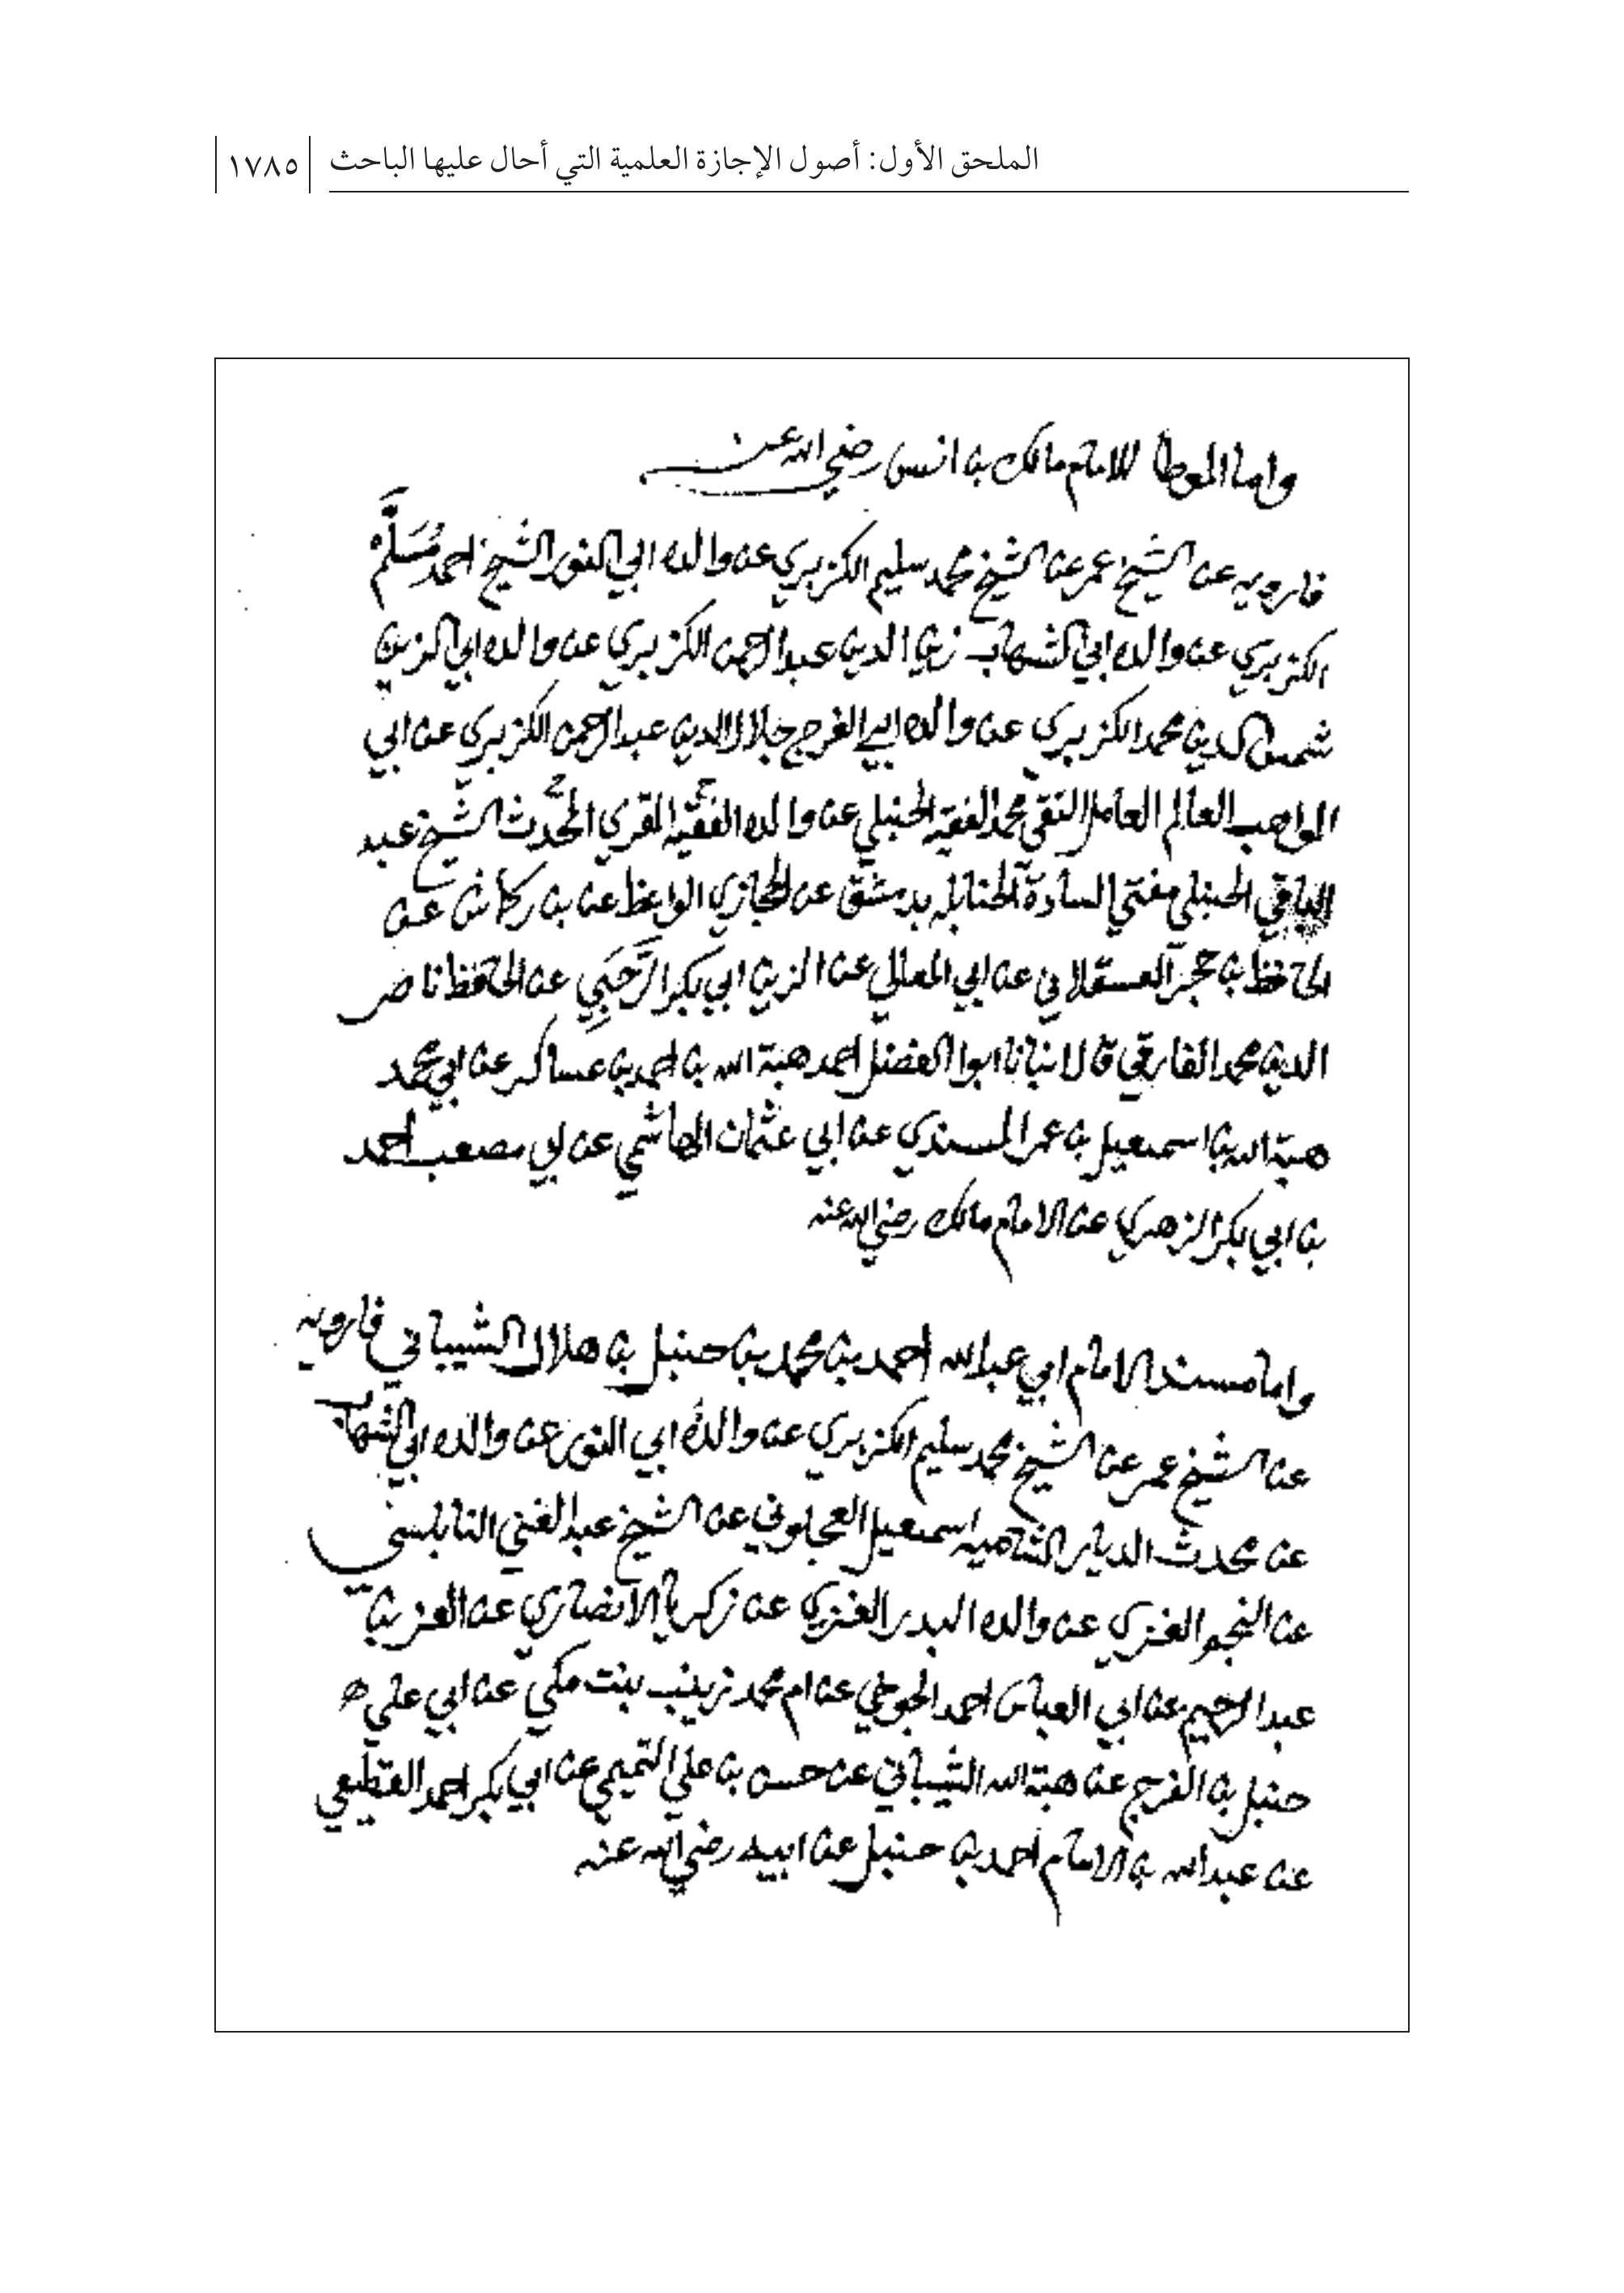 الملحق الأول: أصول الإجازة العلمية التي أحال عليها الباحث ١٧٨٥
واما الموطا للامام مالك بن انس رضي الله عنه
فارويه عن الشيخ عمر عن الشيخ محمد سليم الكزبري عن والده ابي النور الشيخ احمد مُسَلَّم
الكزبري عن والده ابي الشهاب زين الدين عبد الرحمن الكزبري عن والده ابي الزين
شمس الدين محمد الكزبري عن والده ابي الفرج جلال الدين عبد الرحمن الكزبري عن ابي
المواهب العالم العامل التقي محمد الفقيه الحنبلي عن والده الفقيه المقري المحدّث الشيخ عبد
الباقي الحنبلي مفتي السادة الحنابله بدمشق عن الحجازي الواعظ عن بن اركماش عن
الحافظ بن حجر العسقلاني عن ابي المعالي عن الزين ابي بكر الرَّحَبِي عن الحافظ ناصر
الدين محمد الفارقي قال انبانا ابوا الفضل احمد هبة الله بن احمد بن عساكر عن ابي محمد
هبة الله بن اسمعيل بن عمر المسندي عن ابي عثمان الهاشمي عن ابي مصعب احمد
بن ابي بكر الزهري عن الامام مالك رضي الله عنه
واما مسند الامام ابي عبد الله احمد بن محمد بن حنبل بن هلال الشيباني فارويه
عن الشيخ عمر عن الشيخ محمد سليم الكزبري عن والده ابي النور عن والده ابي الشهاب
عن محدث الديار الشاميه اسمعيل العجلوني عن الشيخ عبد الغني النابلسي
عن النجم الغزي عن والده البدر الغزي عن زكريا الانصاري عن العز بن
عبد الرحيم عن ابي العباس احمد الجوخي عن ام محمد زينب بنت مكي عن ابي علي
حنبل بن الفرج عن هبة الله الشيباني عن حسن بن علي التميمي عن ابي بكر احمد القطيعي
عن عبد الله بن الامام احمد بن حنبل عن ابيه رضي الله عنه